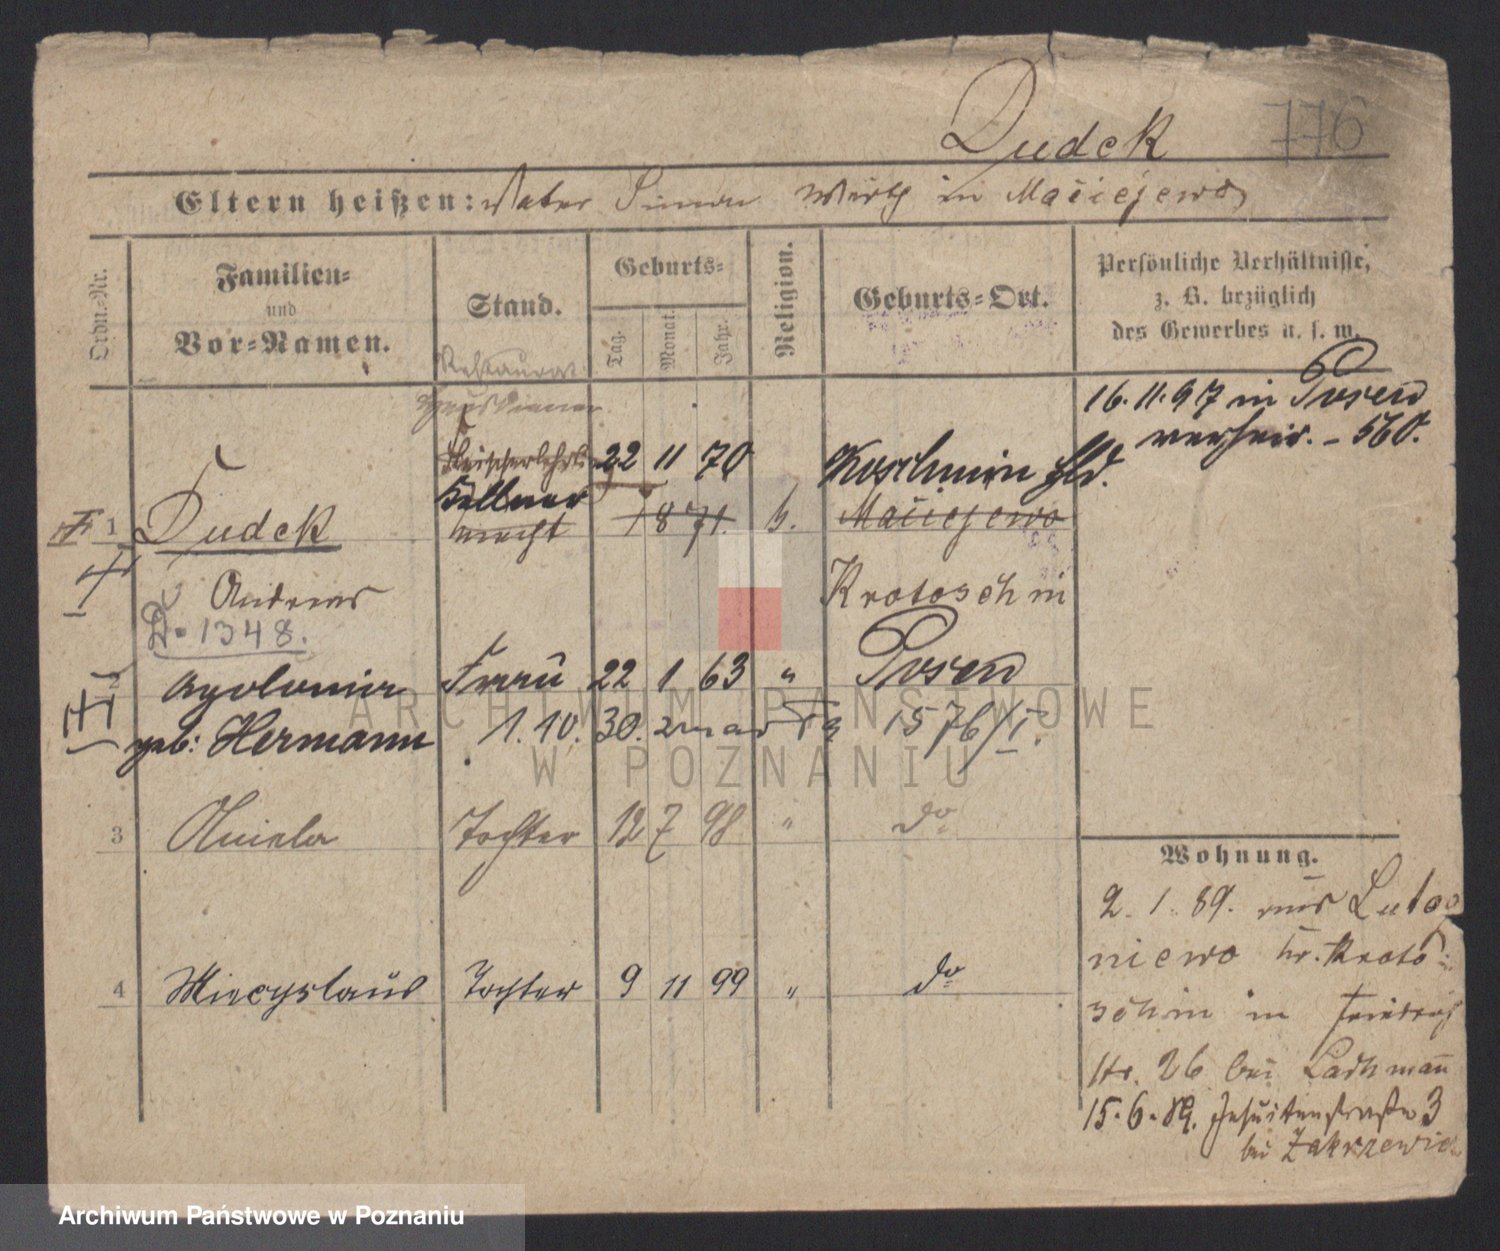 Dudek
776
Eltern heißen: Vater Simon Wirth in Maciejewo
Ordn.-Nr.
Familien-
und
Vor-Namen.
Stand.
Geburts-
Tag.
Monat.
Jahr.
Religion.
Geburts-Ort.
Persönliche Verhältnisse,
z. B. bezüglich
des Gewerbes u. s. w.
Restaurat.
Hausdiener
16. 11. 97 in Posen
verheir. - 560.
Fleischerlehrl. 22 11 70 Koschmin
1 Dudek Kellner
Knecht 1871. k. Maciejewo
Andreas Krotoschin
D. 1348.
Apolonia Frau 22 1 63 " Posen
geb: Hermann 1. 10. 30. 1576/I.
3 Aniela Tochter 12 7 98 " do
4 Miecyslaus Tochter 9 11 99 " do
Wohnung.
2. 1. 89. aus Lutog
niewo Kr. Kroto-
schin in Friedrich
str. 26 bei Lachmann
15. 6. 89. Jesuitenstraße 3
bei Zakrzewic
ARCHIWUM PAŃSTWOWE
W POZNANIU
Archiwum Państwowe w Poznaniu